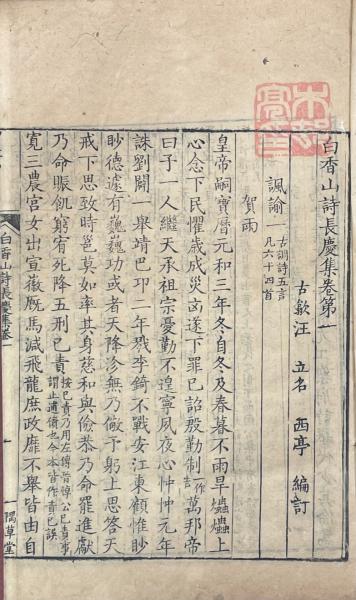 白香山詩長慶集卷第一
古歙汪立名西亭編訂
諷諭一 古調詩五言凡六十四首
賀雨
皇帝嗣寶曆元和三年冬自冬及春暮不雨旱爞爞上
心念下民懼歲成災凶遂下罪已詔殷勤制一作告萬邦帝
曰予一人繼天承祖宗憂勤不遑寧夙夜心忡忡元年
誅劉闢一舉靖巴卭二年戮李錡不戰安江東顧惟眇
眇德遽有巍巍功或者天降沴無乃儆予躬上思答天
戒下思致時邕莫如率其身慈和與儉恭乃命罷進獻
乃命賑飢窮宥死降五刑已責按已責乃用左傳晉悼公已責事謂止逋債也今本皆作責已誤
寛三農宮女出宣徽厩馬減飛龍庶政靡不舉皆由自
白香山詩長慶集卷一
一
一隅草堂